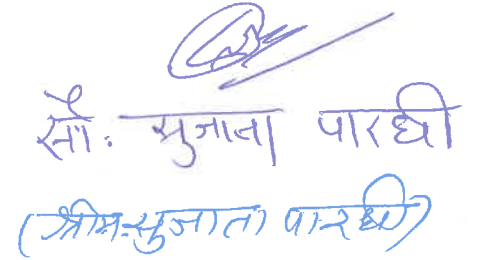 सौ. सुजाता पारधी
(श्रीम. सुजाता पारधी)